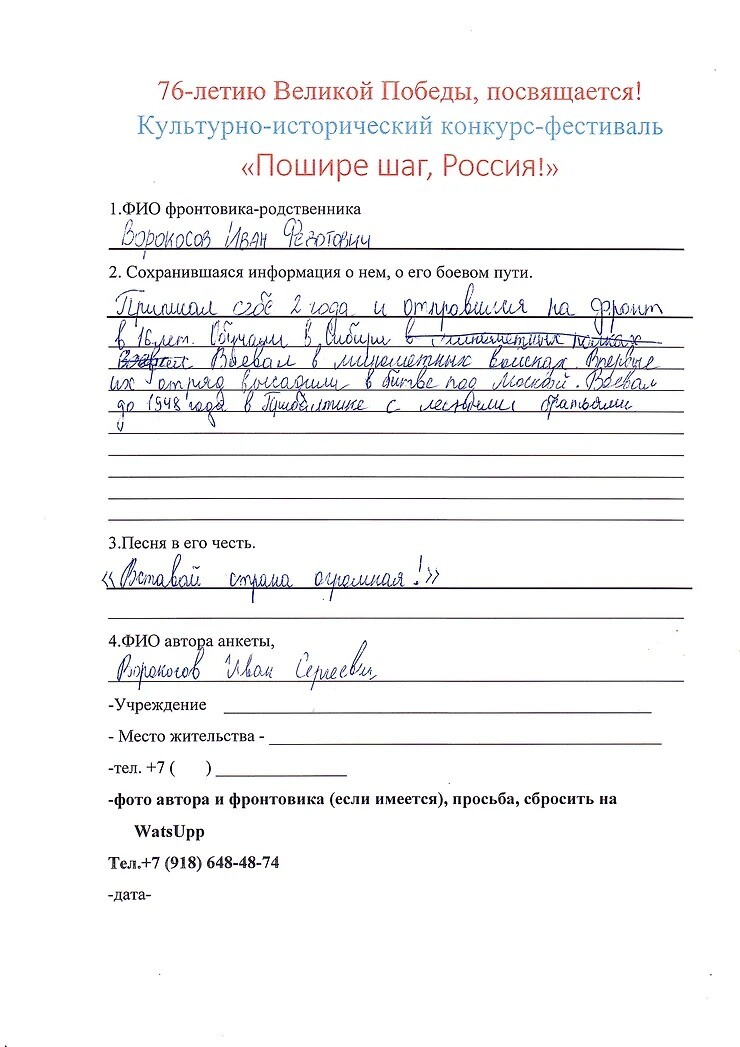 76-летию Великой Победы, посвящается!
Культурно-исторический конкурс-фестиваль
«Пошире шаг, Россия!»
1.ФИО фронтовика-родственника
Ворокосов Иван Федотович
2. Сохранившаяся информация о нем, о его боевом пути.
Приписал себе 2 года и отправился на фронт
в 16 лет. Обучали в Сибири в минометных полках
Воевал в минометных войсках. Впервые
их отряд высадили в битве под Москвой. Воевал
до 1948 года в Прибалтике с лесными братьями
3.Песня в его честь.
«Вставай страна огромная!»
4.ФИО автора анкеты,
Ворокосов Иван Сергеевич
-Учреждение
- Место жительства -
-тел. +7 ( )
-фото автора и фронтовика (если имеется), просьба, сбросить на
WatsUpp
Тел.+7 (918) 648-48-74
-дата-